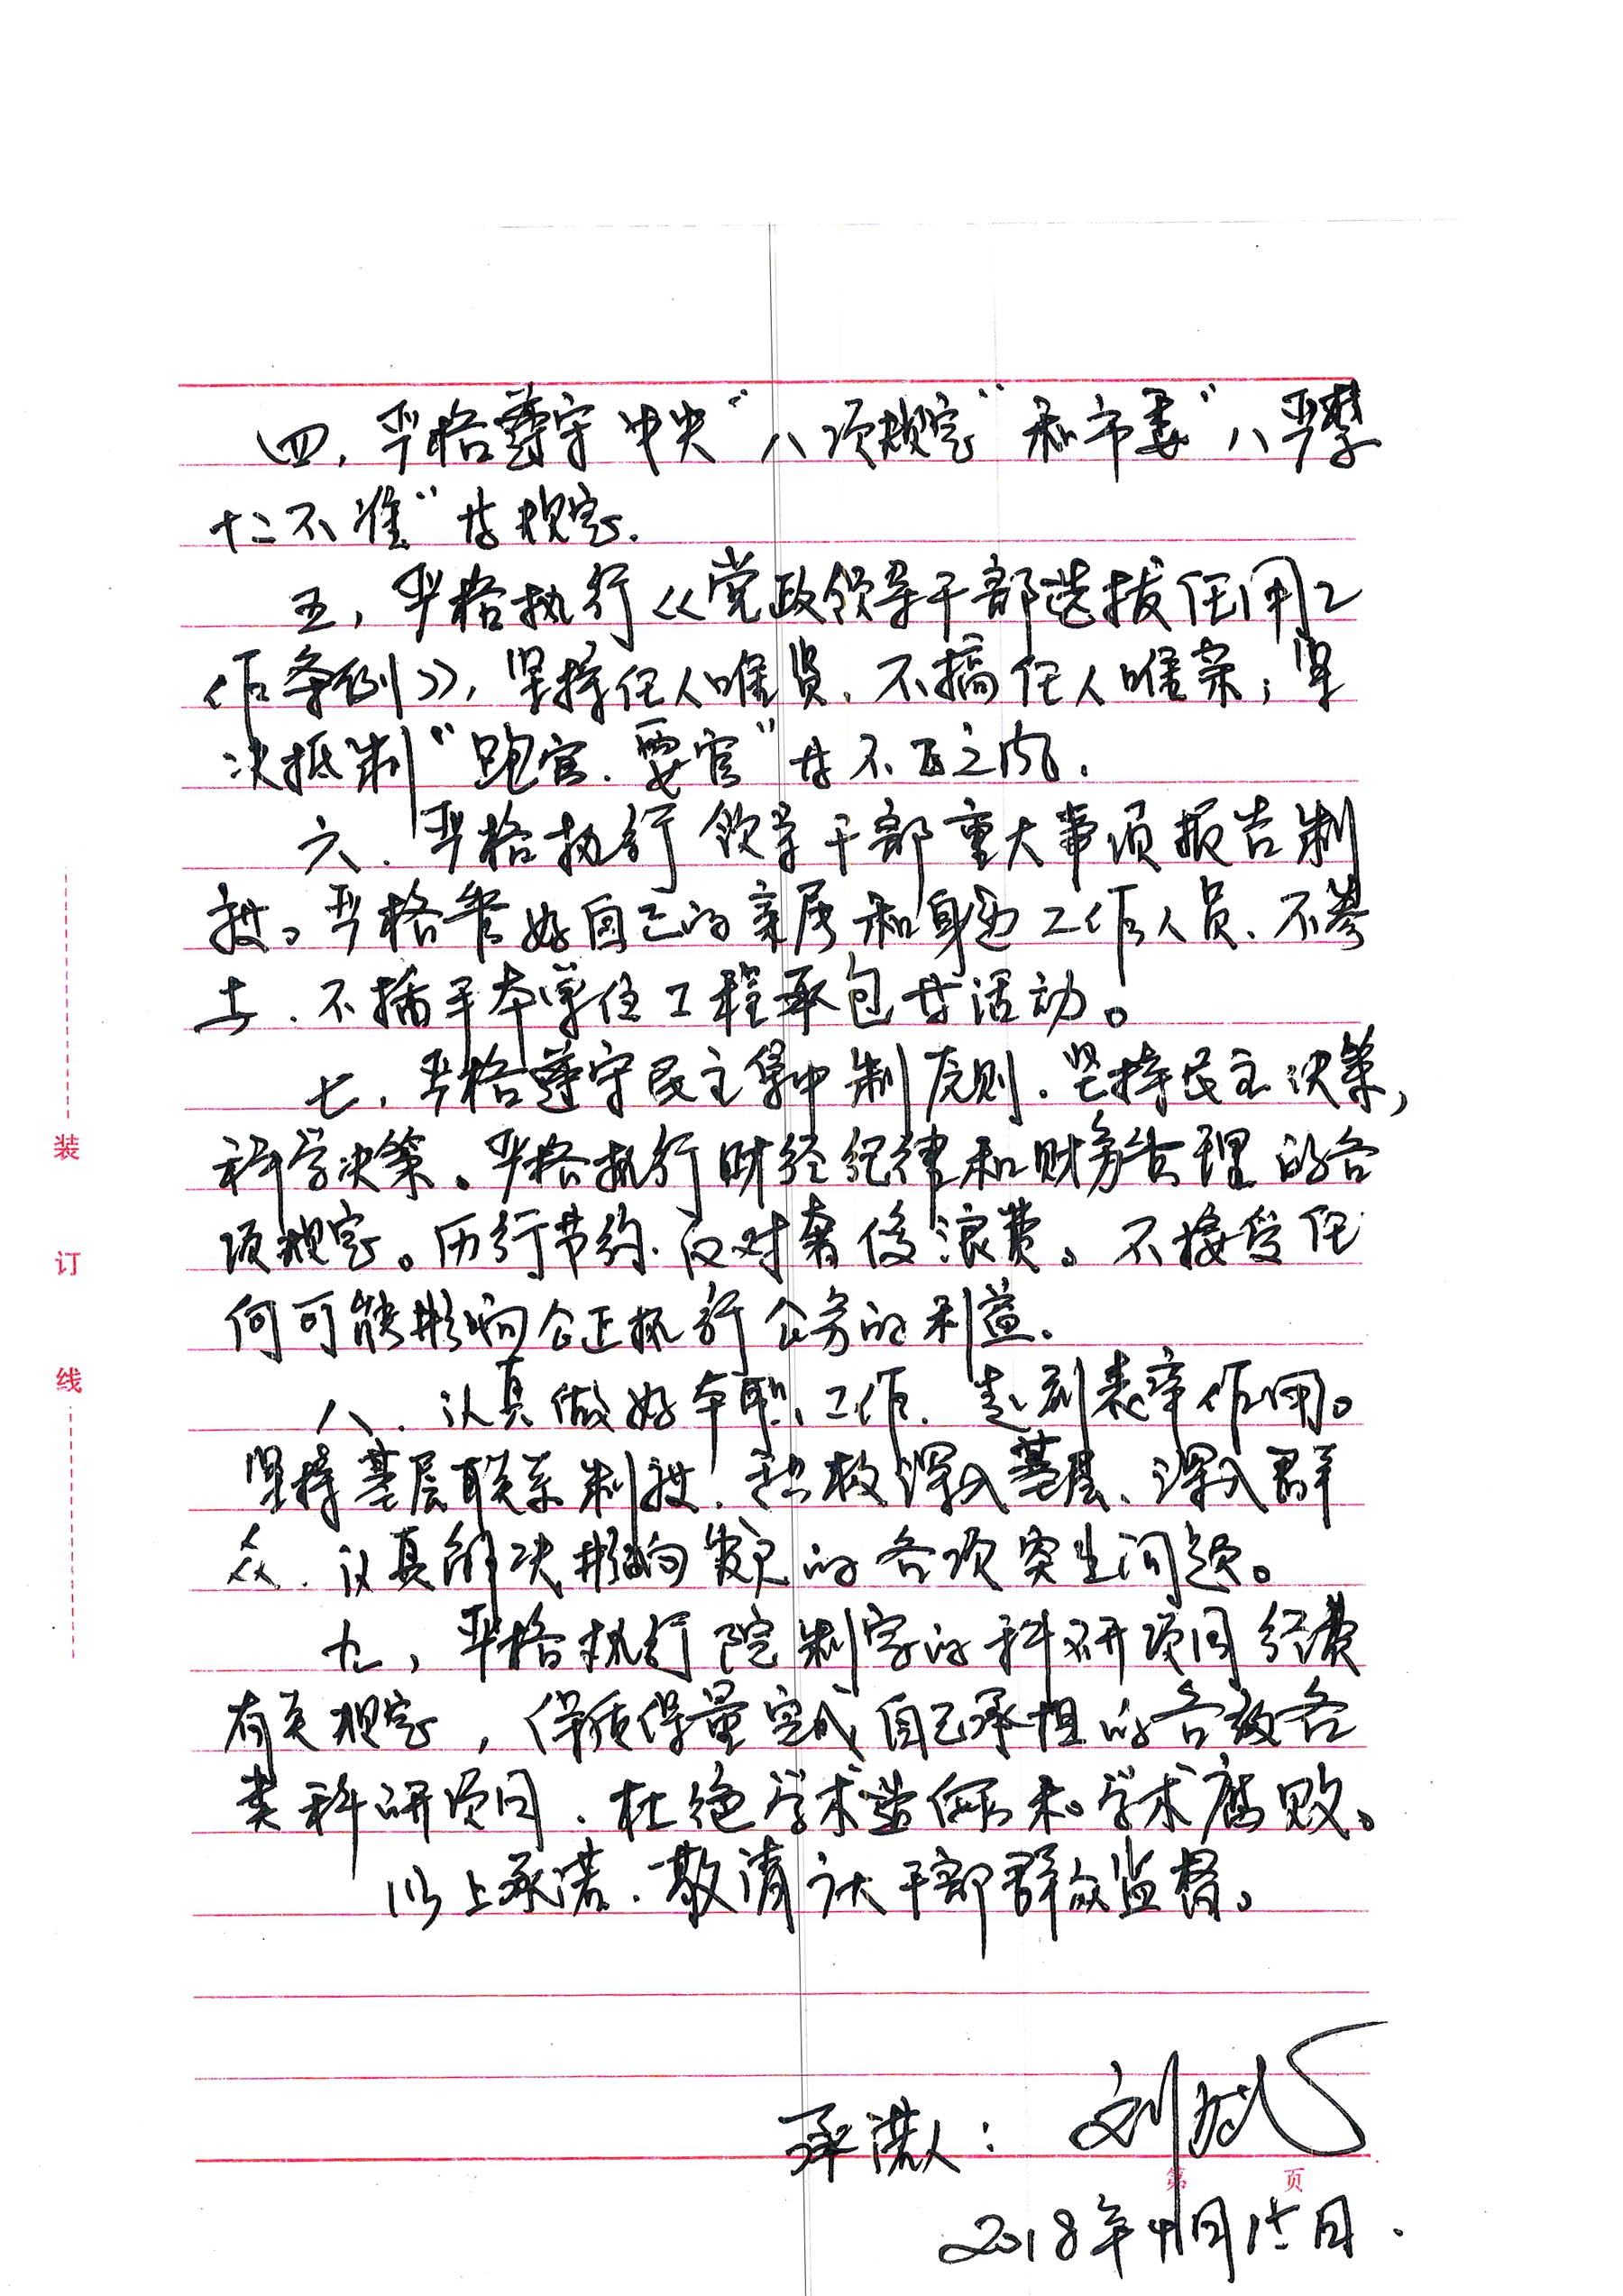 四、严格遵守中央“八项规定”和市委“八严禁
十二不准”等规定。
五、严格执行《党政领导干部选拔任用工
作条例》，坚持任人唯贤、不搞任人唯亲；坚
决抵制“跑官、要官”等不正之风。
六、严格执行领导干部重大事项报告制
度。严格管好自己的亲属和身边工作人员、不参
与、不插手本单位工程承包等活动。
七、严格遵守民主集中制原则、坚持民主决策，
科学决策。严格执行财经纪律和财务管理的各
项规定。厉行节约、反对奢侈浪费。不接受任
何可能影响公正执行公务的利益。
八、认真做好本职工作、起到表率作用。
坚持基层联系制度、积极深入基层、深入群
众、认真解决影响发展的各项突出问题。
九、严格执行院制定的科研项目经费
有关规定，保质保量完成自己承担的各级各
类科研项目、杜绝学术造假和学术腐败。
以上承诺、敬请广大干部群众监督。
承诺人：刘
2018年4月15日.
装
订
线
第 页